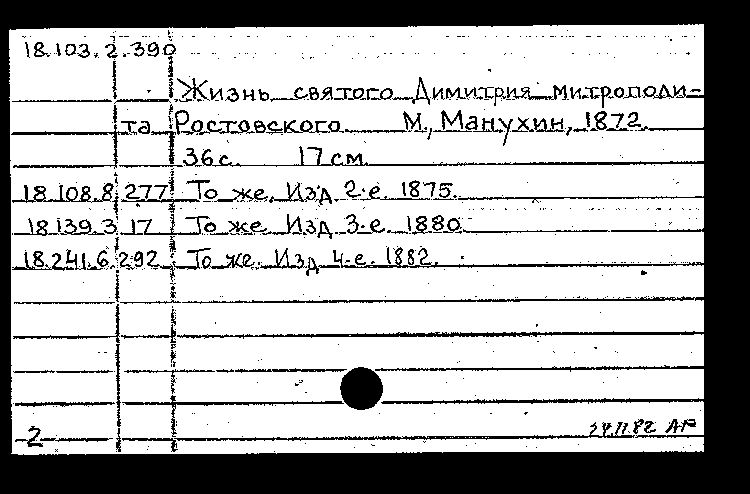 18.103.2.390
Жизнь святого Димитрия митрополи-
та Ростовского. М., Манухин, 1872.
36 с. 17 см.
18.108.8.277 То же, Изд. 2-е. 1875.
18.139.3.17 То же. Изд. 3-е. 1880.
18.241.6.292 То же. Изд. 4-е. 1882.
2